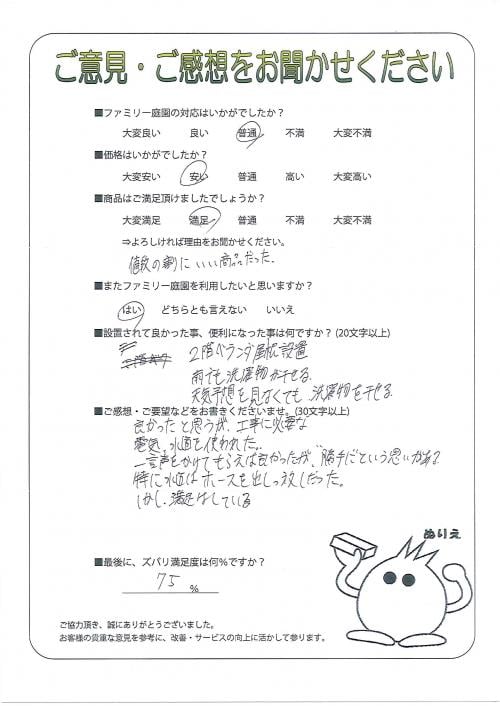 ご意見・ご感想をお聞かせください
■ファミリー庭園の対応はいかがでしたか？
大変良い 良い 普通 不満 大変不満
■価格はいかがでしたか？
大変安い 安い 普通 高い 大変高い
■商品はご満足頂けましたでしょうか？
大変満足 満足 普通 不満 大変不満
⇒よろしければ理由をお聞かせください。
値段の割にいい商品だった。
■またファミリー庭園を利用したいと思いますか？
はい どちらとも言えない いいえ
■設置されて良かった事、便利になった事は何ですか？(20文字以上)
2階ベランダ屋根設置
雨でも洗濯物が干せる
天気予想を見なくても 洗濯物を干せる
■ご感想・ご要望などをお書きくださいませ。(30文字以上)
良かったと思うが、工事に必要な
電気、水道を使われた。
一言声をかけてもらえば良かったが、勝手にという思いがある
特に水道はホースを出しっ放しだった。
しかし、満足はしている
ぬりえ
■最後に、ズバリ満足度は何%ですか？
75 %
ご協力頂き、誠にありがとうございました。
お客様の貴重な意見を参考に、改善・サービスの向上に活かして参ります。